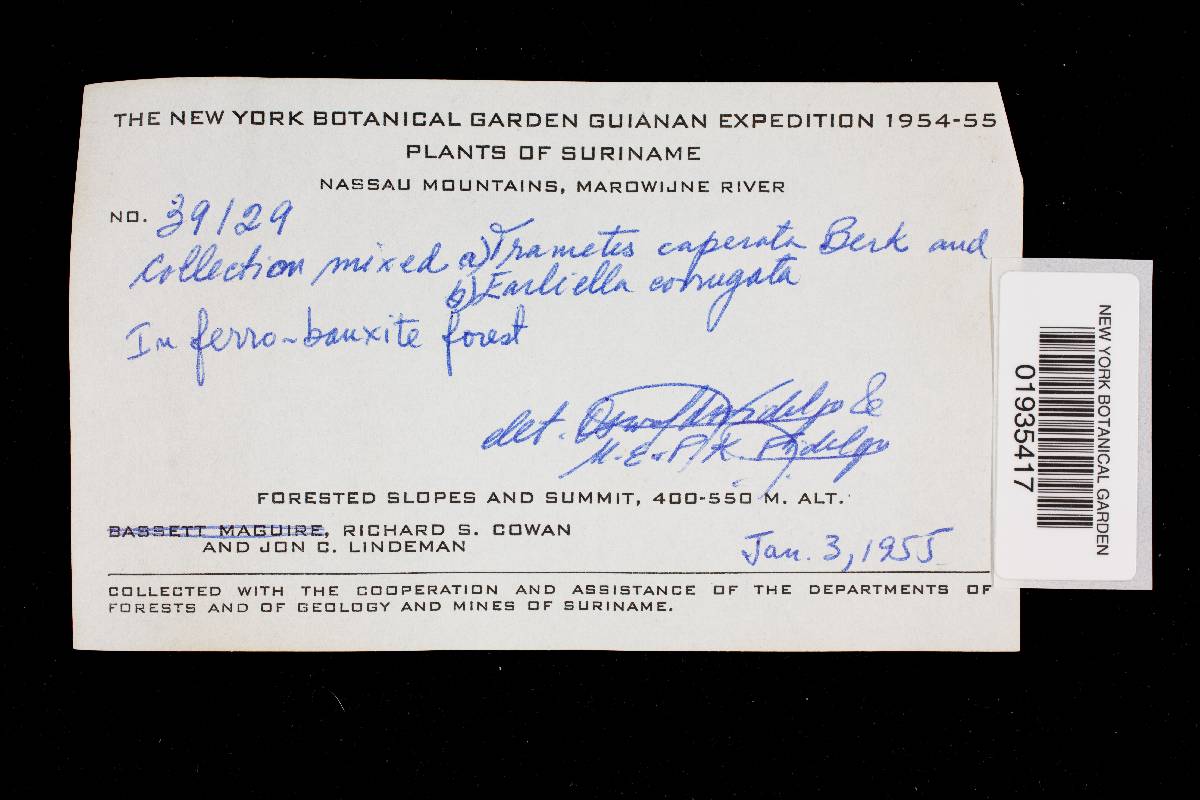 THE NEW YORK BOTANICAL GARDEN GUIANAN EXPEDITION 1954-55
PLANTS OF SURINAME
NASSAU MOUNTAINS, MAROWIJNE RIVER
NO. 39129
Collection mixed a) Trametes caperata Berk and
b) Earliella corrugata
In ferro-bauxite forest
det. Oswaldo Fidalgo &
M.E.P.K. Fidalgo
FORESTED SLOPES AND SUMMIT, 400-550 M. ALT.
BASSETT MAGUIRE, RICHARD S. COWAN
AND JON C. LINDEMAN
Jan. 3, 1955
COLLECTED WITH THE COOPERATION AND ASSISTANCE OF THE DEPARTMENTS OF
FORESTS AND OF GEOLOGY AND MINES OF SURINAME.
NEW YORK BOTANICAL GARDEN
01935417